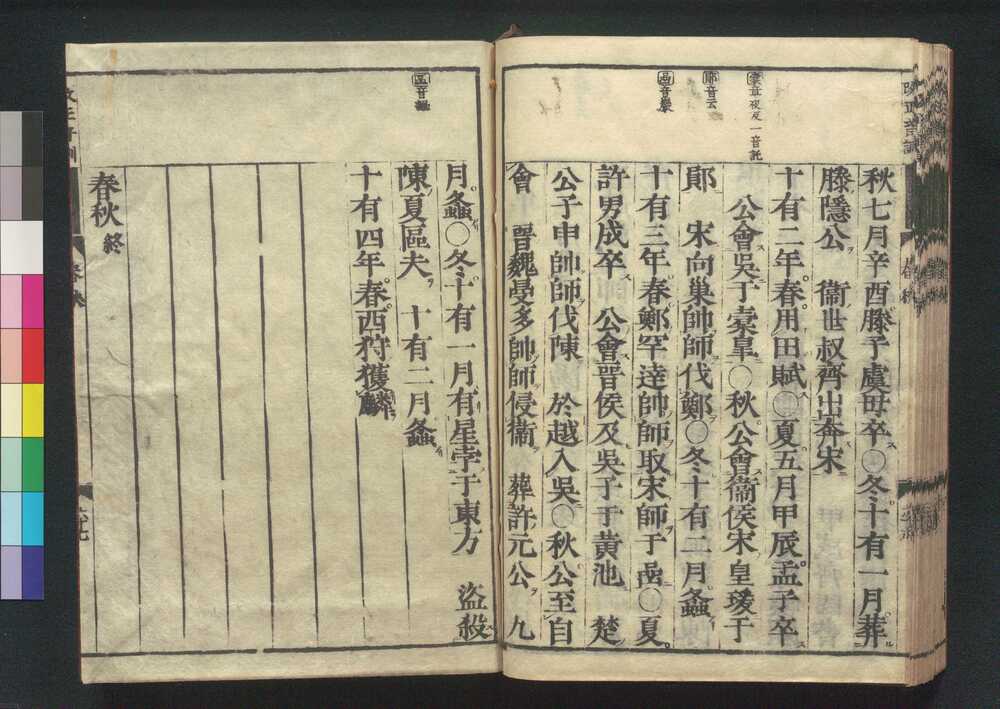 橐章夜反一音託
鄖音云
嵒音巖
秋七月辛酉滕子虞母卒○冬十有一月葬
滕隱公　衞世叔齊出奔宋
十有二年春用田賦○夏五月甲辰孟子卒
公會吳于橐皐○秋公會衞侯宋皇瑗于
鄖　宋向巢帥師伐鄭○冬十有二月螽
十有三年春鄭罕達帥師取宋師于嵒○夏
許男成卒　公會晉侯及吳子于黃池　楚
公子申帥師伐陳　於越入吳○秋公至自
會　晉魏曼多帥師侵衞　葬許元公　九
區音
月螽○冬十有一月有星孛于東方　盜殺
陳夏區夫　十有二月螽
十有四年春西狩獲麟
春秋終